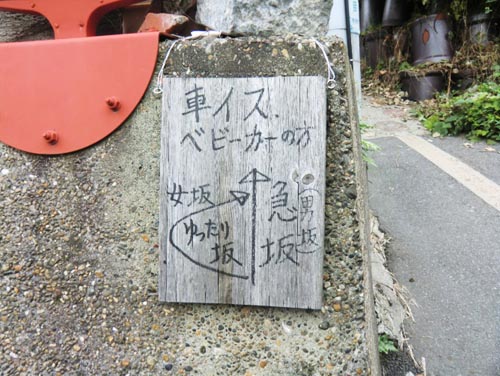 車イス.
ベビーカーの方
女坂
ゆったり
坂
急
坂
(男坂)